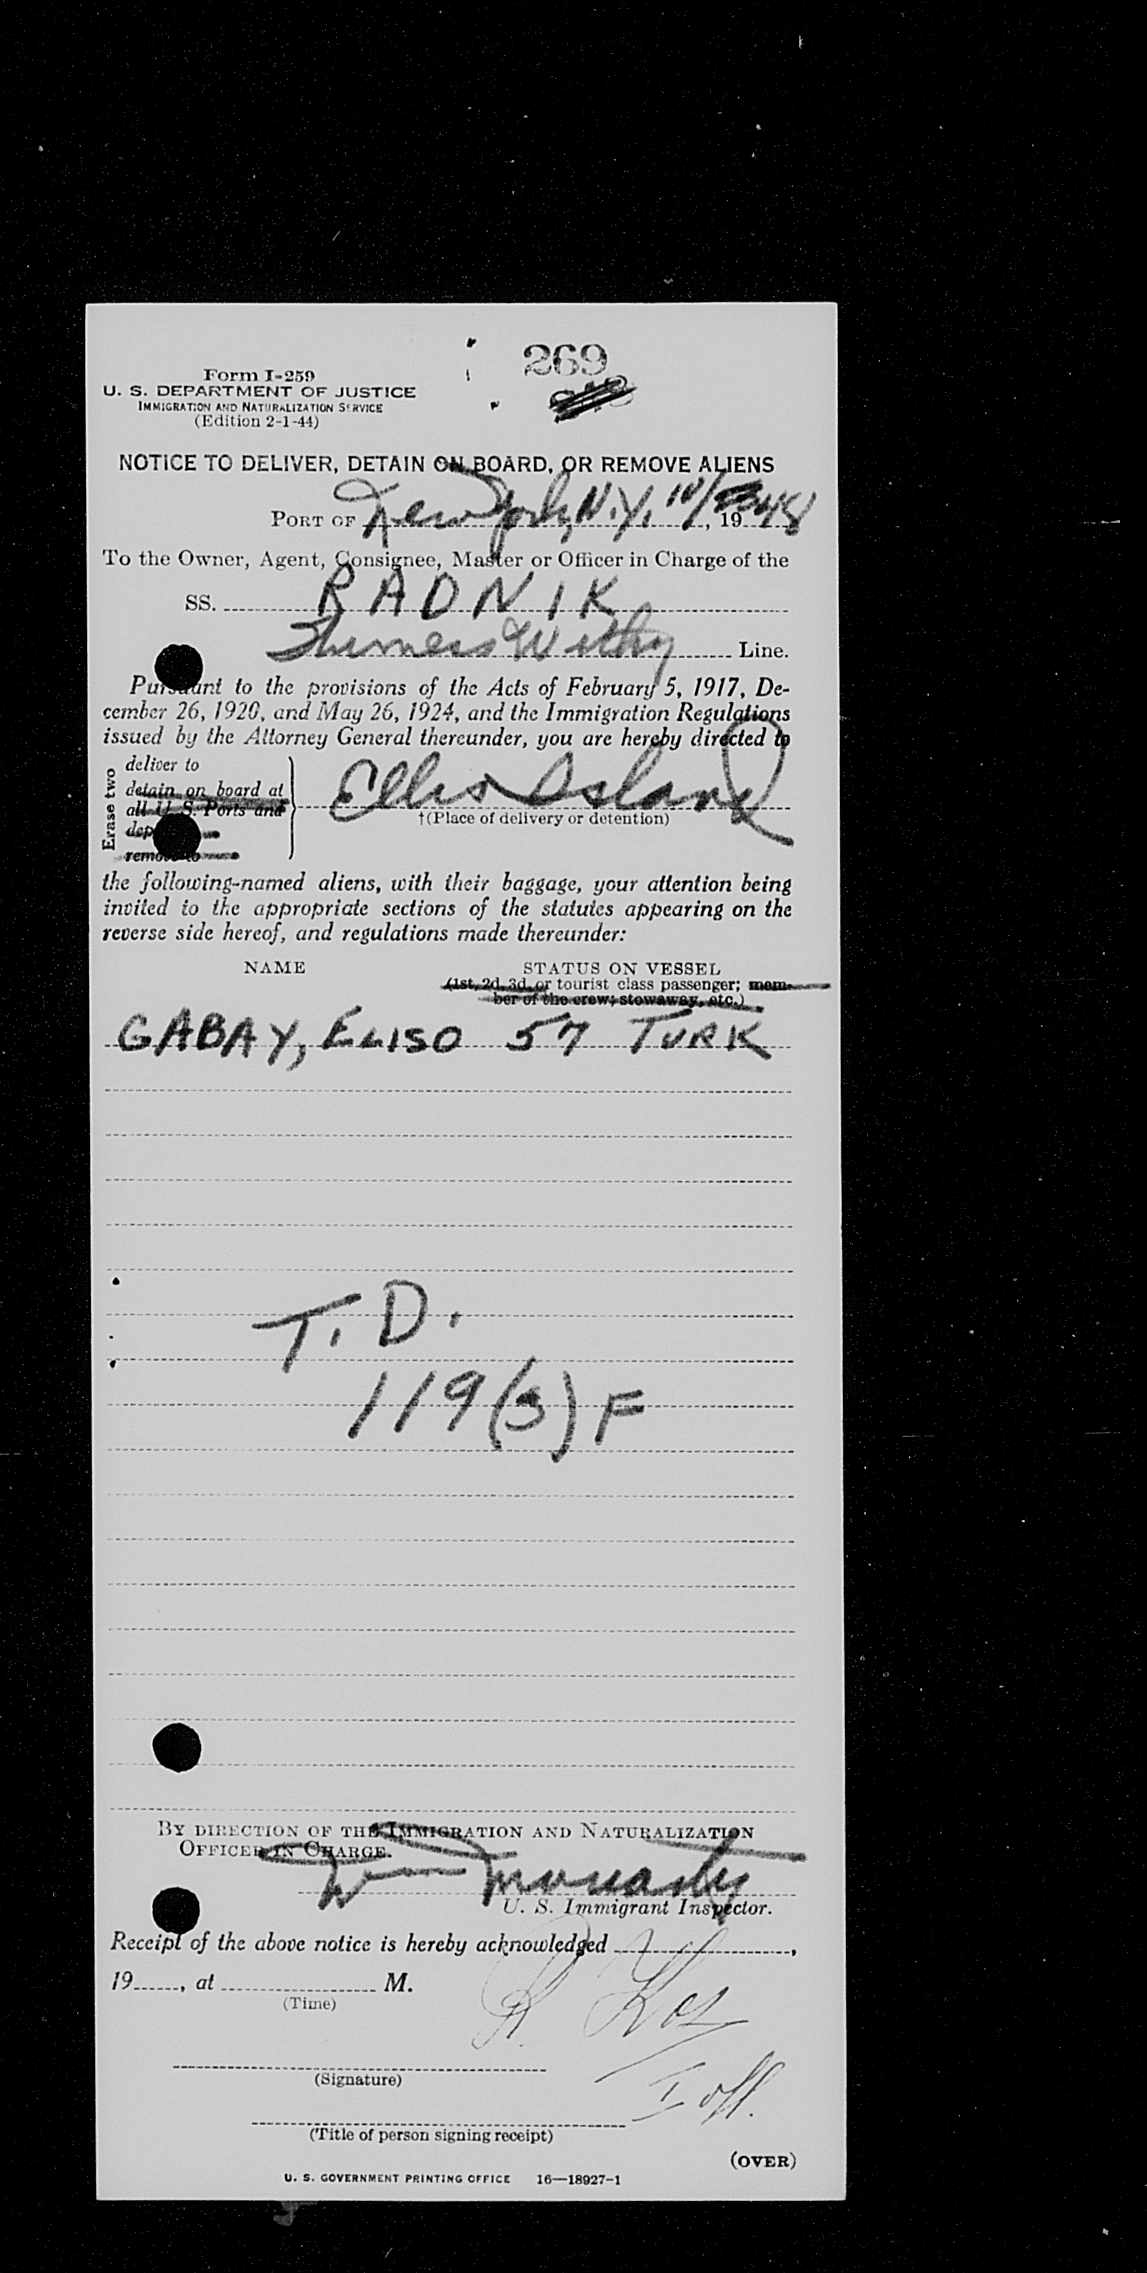 269
Form I-259
U. S. DEPARTMENT OF JUSTICE
IMMIGRATION AND NATURALIZATION SERVICE
(Edition 2-1-44)
NOTICE TO DELIVER, DETAIN ON BOARD, OR REMOVE ALIENS
PORT OF New York, N.Y. 10/ , 1948
To the Owner, Agent, Consignee, Master or Officer in Charge of the
SS. RADNIK
Thurness Withy Line.
Pursuant to the provisions of the Acts of February 5, 1917, De-
cember 26, 1920, and May 26, 1924, and the Immigration Regulations
issued by the Attorney General thereunder, you are hereby directed to
Erase two
deliver to
detain on board at
all U. S. Ports and
dep
remove to
Ellis Island
†(Place of delivery or detention)
the following-named aliens, with their baggage, your attention being
invited to the appropriate sections of the statutes appearing on the
reverse side hereof, and regulations made thereunder:
NAME STATUS ON VESSEL
(1st, 2d, 3d, or tourist class passenger; mem-
ber of the crew; stowaway, etc.)
GABAY, ELISO 57 TURK
T. D.
119(s) F
BY DIRECTION OF THE IMMIGRATION AND NATURALIZATION
OFFICER IN CHARGE.
Wm
U. S. Immigrant Inspector.
Receipt of the above notice is hereby acknowledged ,
19 , at M.
(Time)
I off.
(Signature)
(Title of person signing receipt)
(OVER)
U. S. GOVERNMENT PRINTING OFFICE 16—18927-1